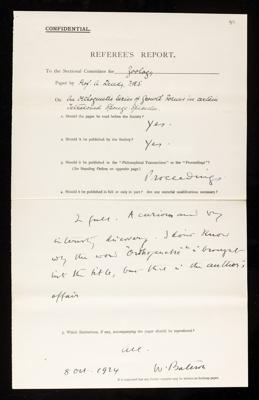 CONFIDENTIAL.
REFEREE'S REPORT.
To the Sectional Committee for Zoology
Paper by Prof. A. Dendy, F.R.S.
On An Orthogenetic Series of Growth Forms in certain
Tetraxonid Sponge Spicules.
1. Should the paper be read before the Society?
Yes.
2. Should it be published by the Society?
Yes.
3. Should it be published in the "Philosophical Transactions" or the "Proceedings"?
(See Standing Orders on opposite page.)
Proceedings
4. Should it be published in full or only in part? Are any material modifications necessary?
In full. A curious and very
interesting discovery. I don't know
why the word "Orthogenetic" is brought
into the title, but this is the author's
affair
5. Which illustrations, if any, accompanying the paper should be reproduced?
all.
8 Oct. 1924 W. Bateson